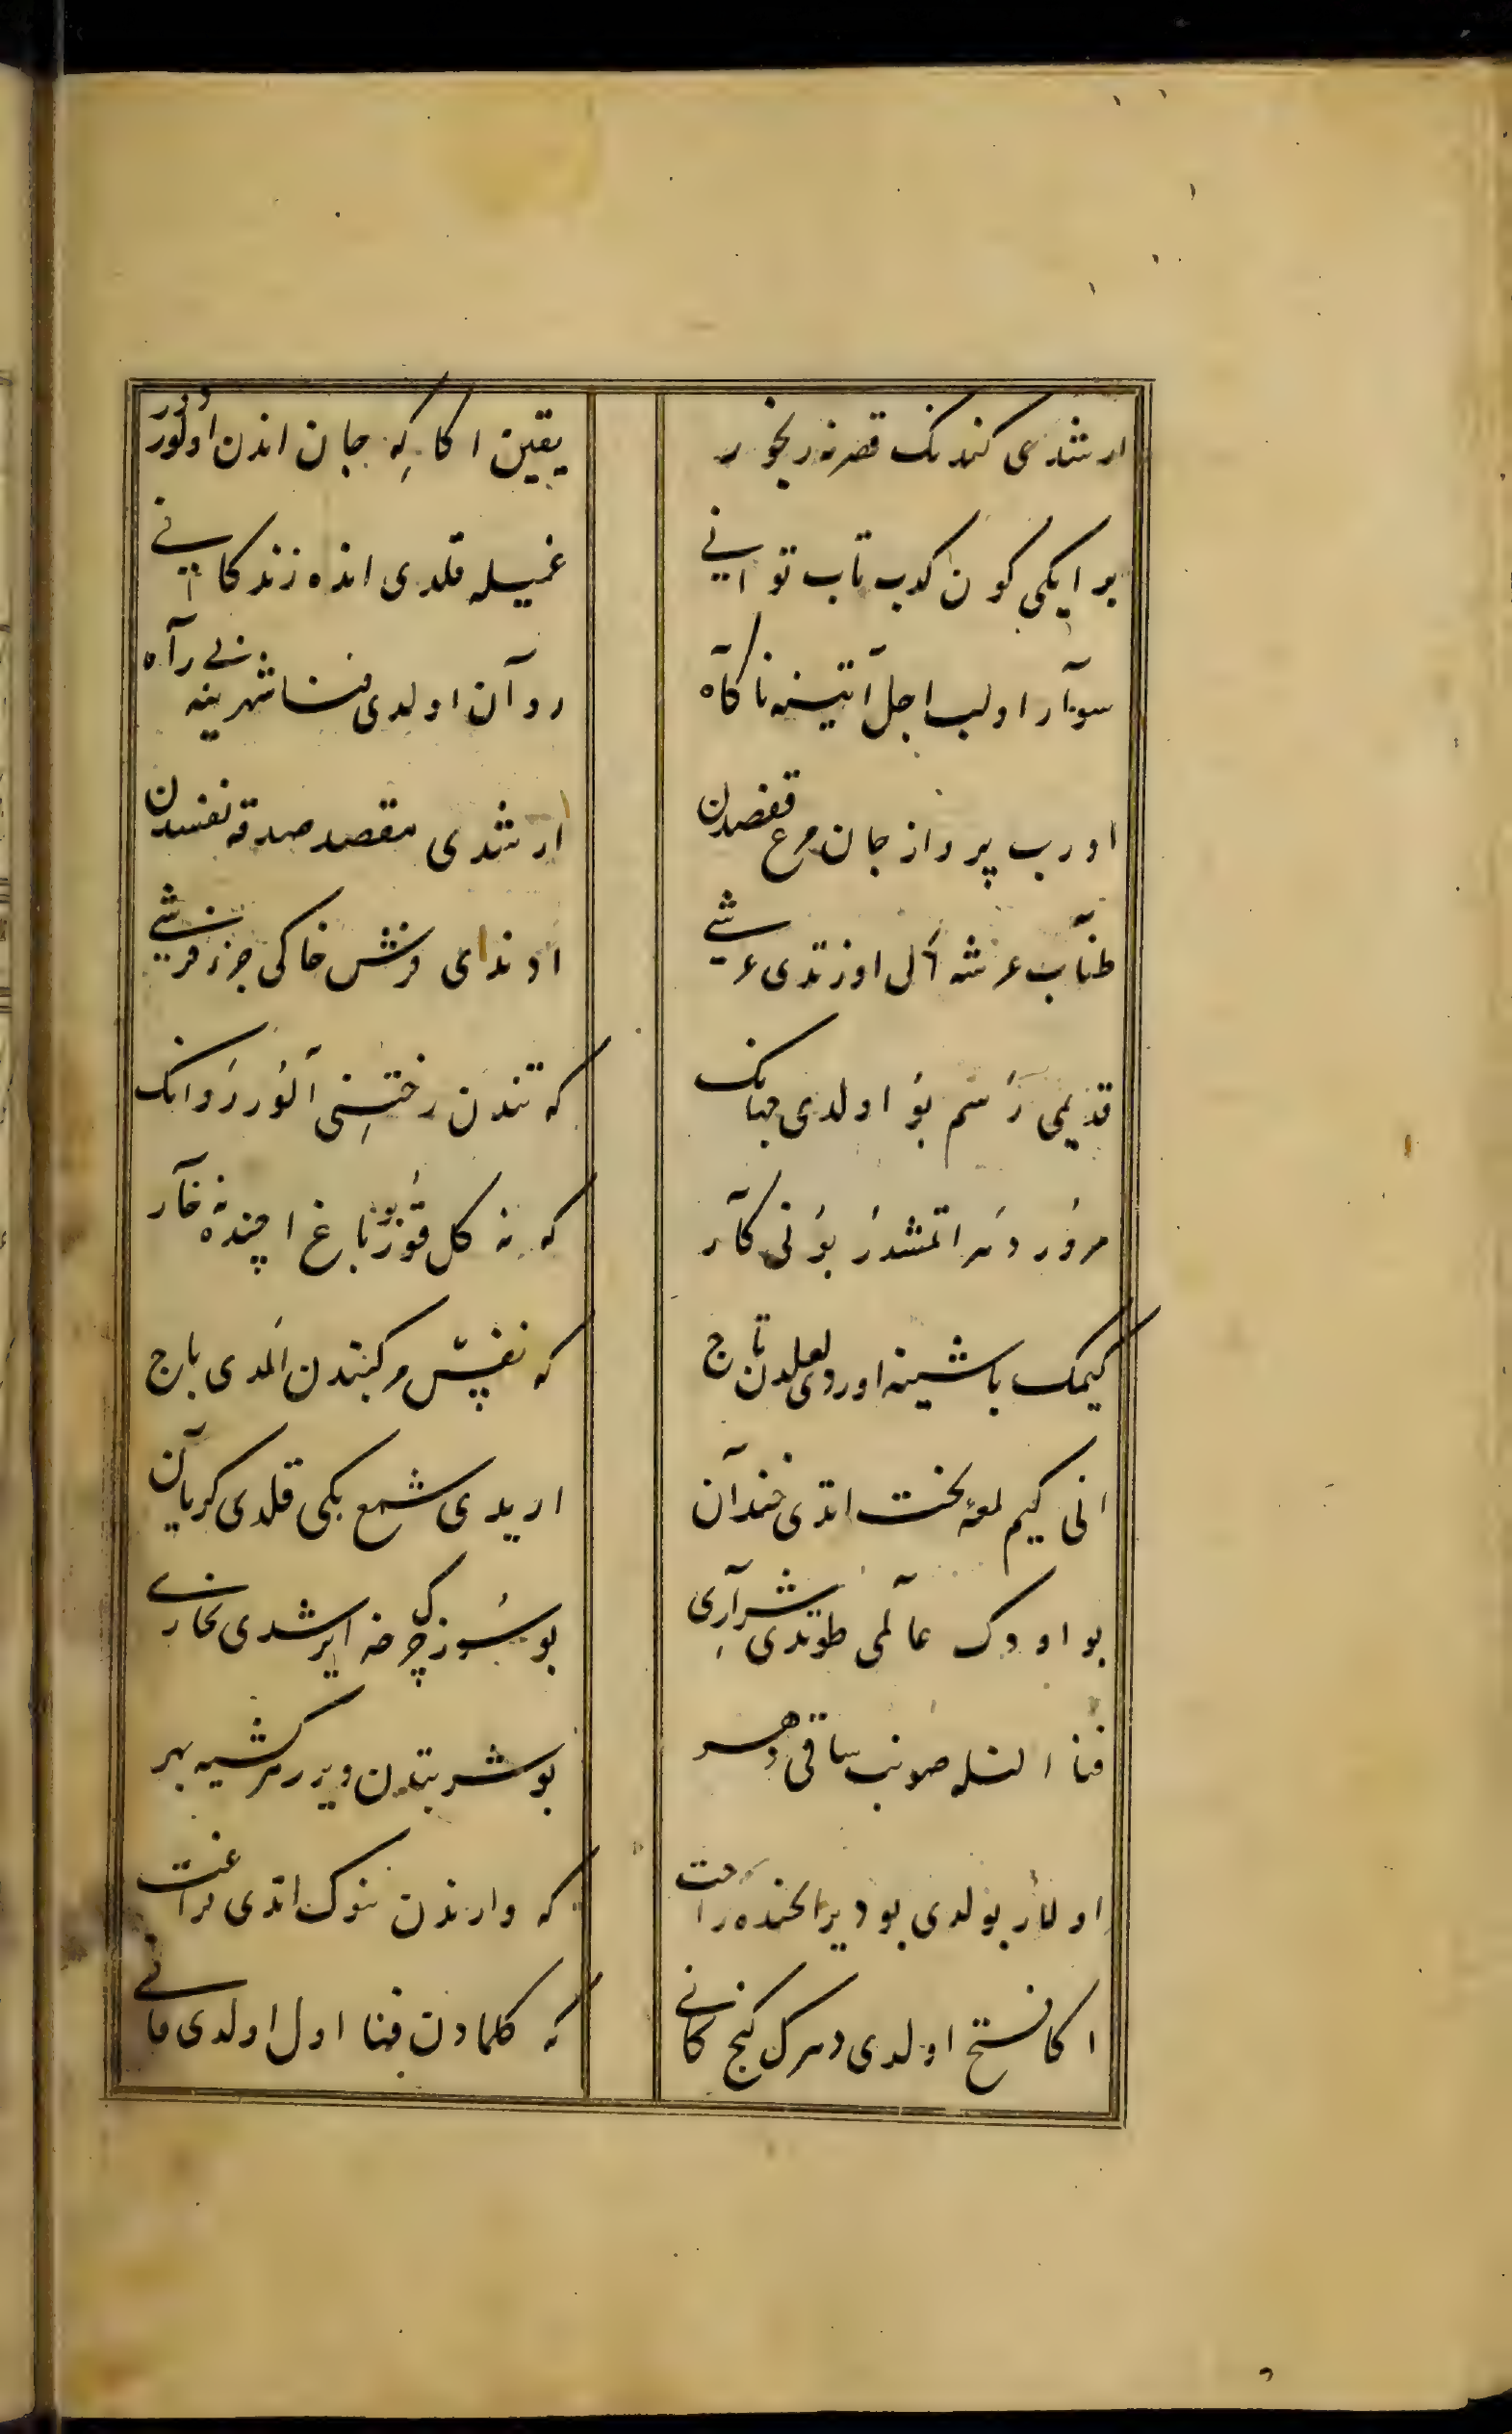 ارشدی کندنک قصرنه رنجور یقین اکا که جان اندن اولور دور
بر ایکی کون کدب تاب توانی غمیله قلدی انده زندکانی
سوآر اولب اجل آتینه ناکآه روآن اولدی فنا شهرینه بی رآه
اورب پرواز جان مرغ قفصدن ارشدی مقصد صدقه نفسدن
طنآب عرشه آل اوزتدی عرشی اوندای فرش خاکی جزء فرشی
قدیمی رسم بو اولدی جهانک که تندن رختنی آلور روانک
مرور دهر اتمشدر بو نی کآر که نه کل قور بو باغ اچنده نه خآر
کیمک باشینه اوردی لعلدن تاج که نفیس مرکبندن المدی باج
انی کیم لمعهٔ بخت اتدی خندآن اریدی شمع بکی قلدی کریآن
بو اودک عآلمی طوتدی شرآری بو سوزک چرخه ایرشدی بخاری
فنا النله صونب ساقی دهر بو شربتدن ویرر هر کشیه بهر
اولار بولدی بو دیر الخنده راحت که وارندن بنوک اتدی فراغت
اکا فتح اولدی دهرک کنج کانی که کلمادن فنا اول اولدی فانی